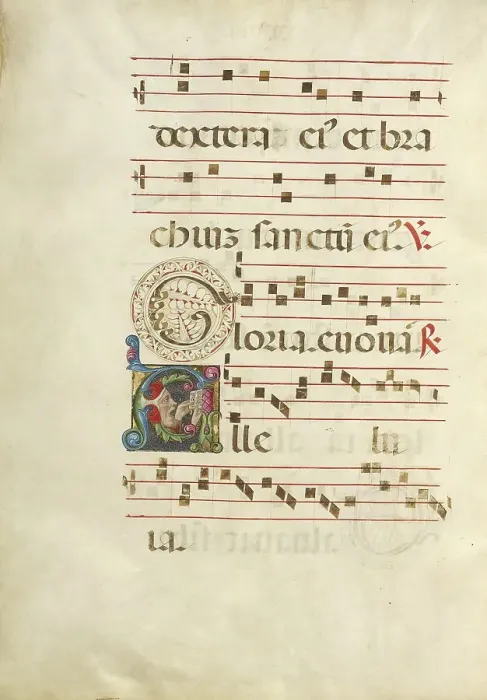 dextera ei⁹ et bra
chiuʒ sanctū ei⁹. ℣.
Gloria. euouaē ℟
Alle lu
ia.